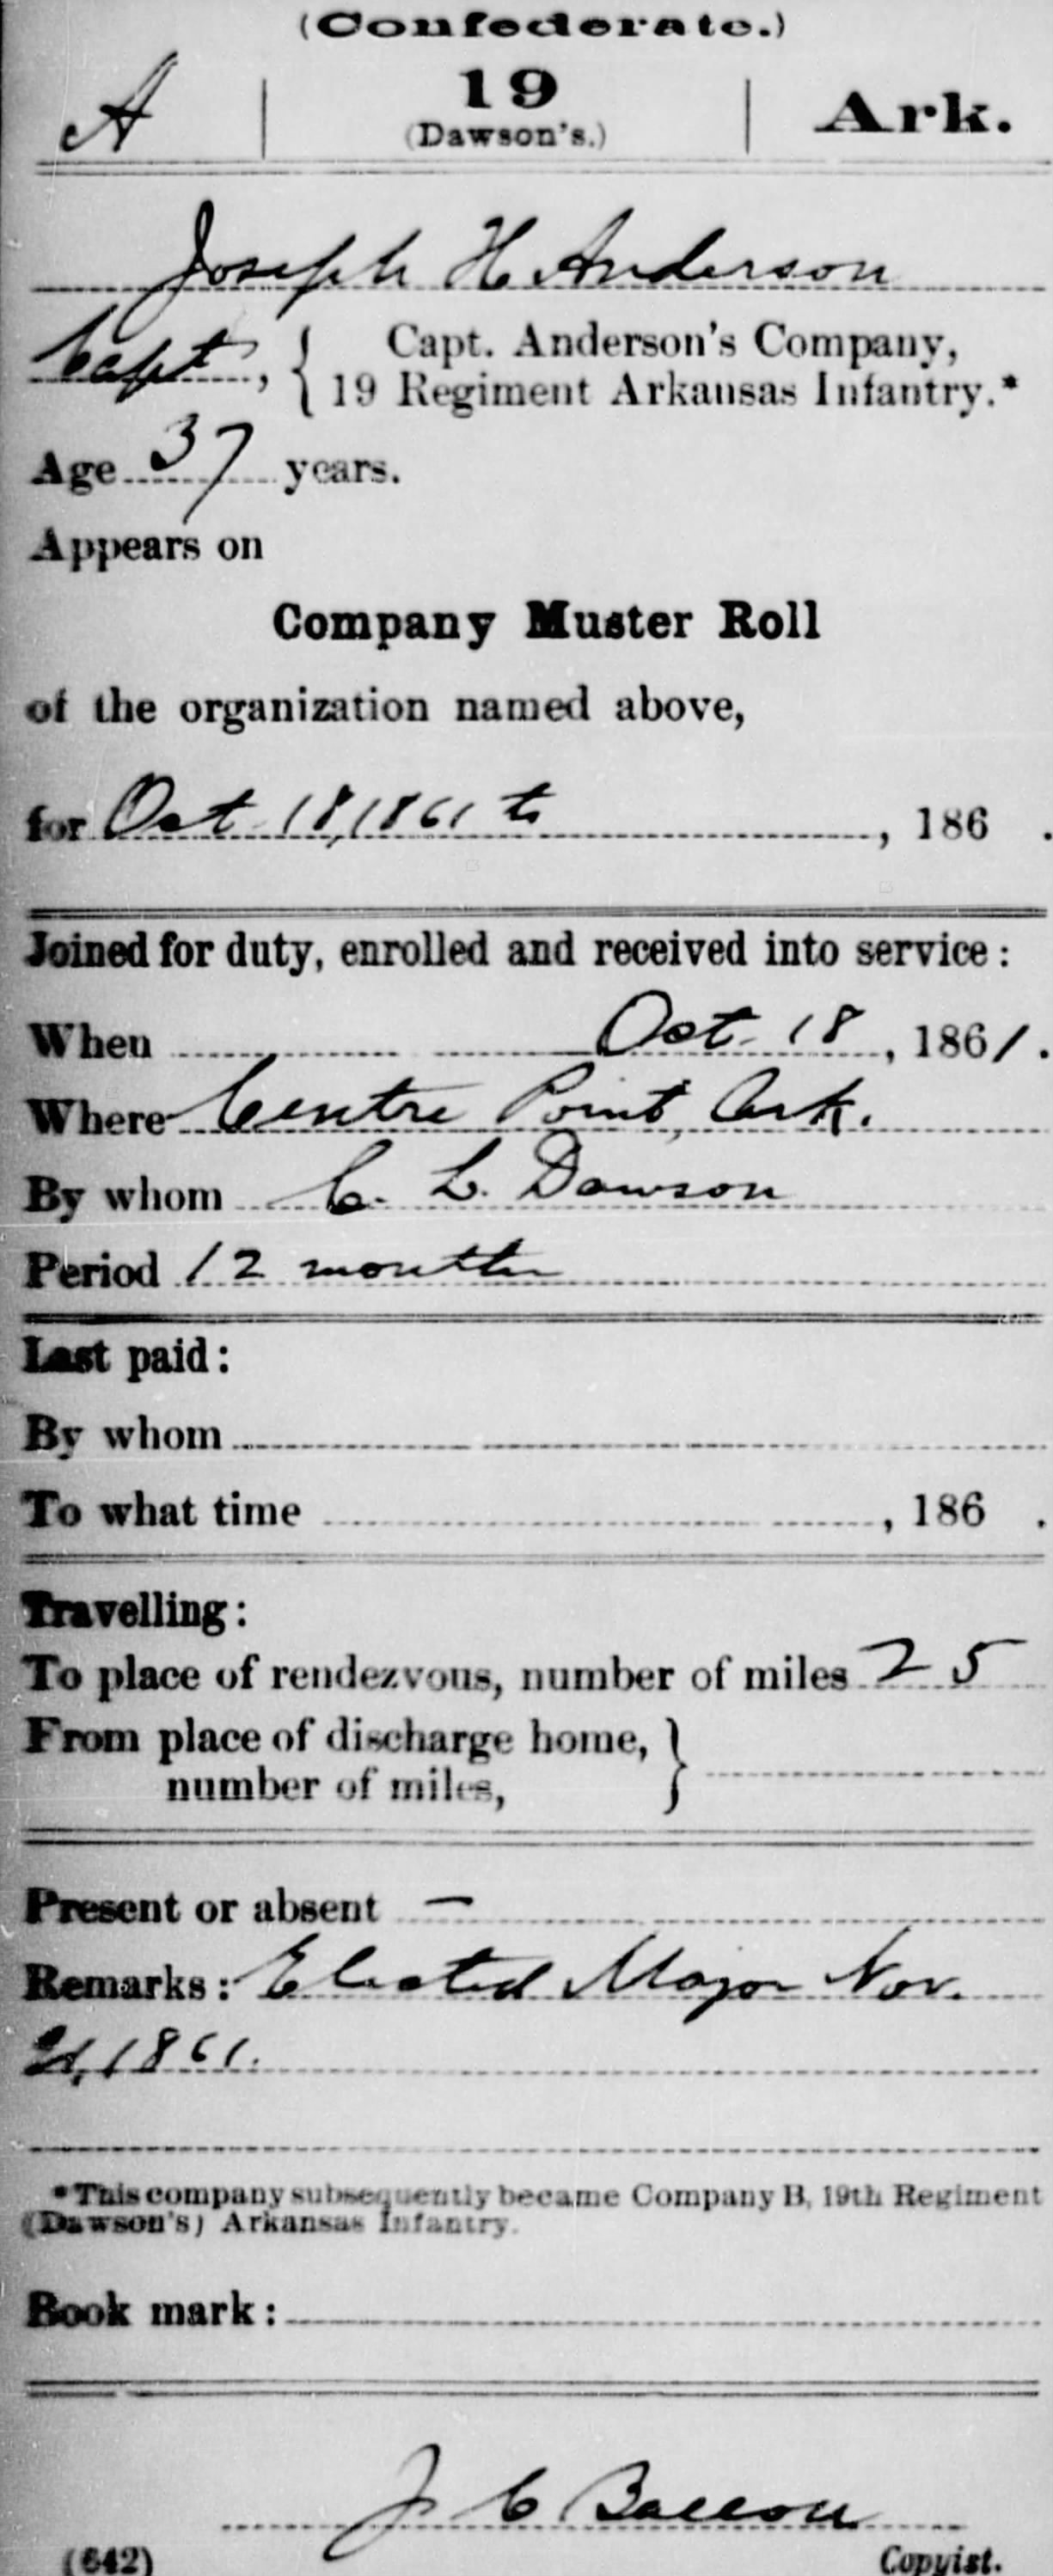 (Confederate.)
A | 19 | Ark.
(Dawson's.)
Joseph H Anderson
Capt, { Capt. Anderson's Company,
19 Regiment Arkansas Infantry.*
Age 37 years.
Appears on
Company Muster Roll
of the organization named above,
for Oct 18, 1861 to , 186 .
Joined for duty, enrolled and received into service:
When Oct 18, 1861.
Where Centre Point, Ark.
By whom C. L. Dawson
Period 12 months
Last paid:
By whom
To what time , 186 .
Travelling:
To place of rendezvous, number of miles 25
From place of discharge home, }
number of miles,
Present or absent —
Remarks: Elected Major Nov.
1861.
*This company subsequently became Company B, 19th Regiment
(Dawson's) Arkansas Infantry.
Book mark:
J C
(642) Copyist.